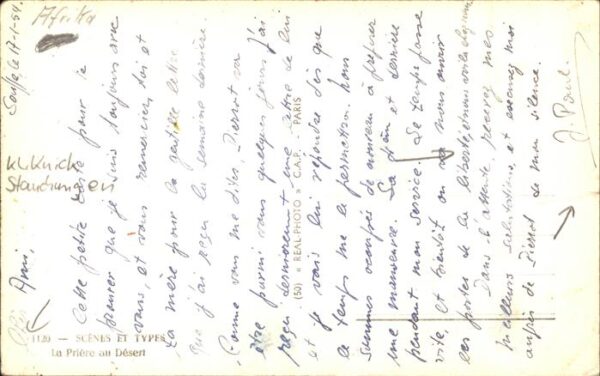 Afrika
Kl. Knick
Stauchungen
Ami,
Cette petite carte pour te
prouver que je suis toujours avec
vous, et vous remercier, toi et
ta mère pour la gentille lettre
que j'ai reçu la semaine dernière.
Comme vous me dites, Pierrot va
être parmi vous quelques jours, j'ai
reçu dernièrement une lettre de lui
et je vais lui répondre dès que
le temps me le permettra. Nous
sommes occupés de nouveau à préparer
une manœuvre. La fin et dernière
pendant mon service. Le temps passe
vite, et bientôt on va nous ouvrir
les portes de la liberté, et nous voilà
Dans l'attente, recevez mes
meilleurs salutations, et excusez moi
auprès de Pierrot de mon silence.
J. Paul.
(50) « REAL-PHOTO » C.A.P. - PARIS
1120 - SCÈNES ET TYPES
La Prière au Désert